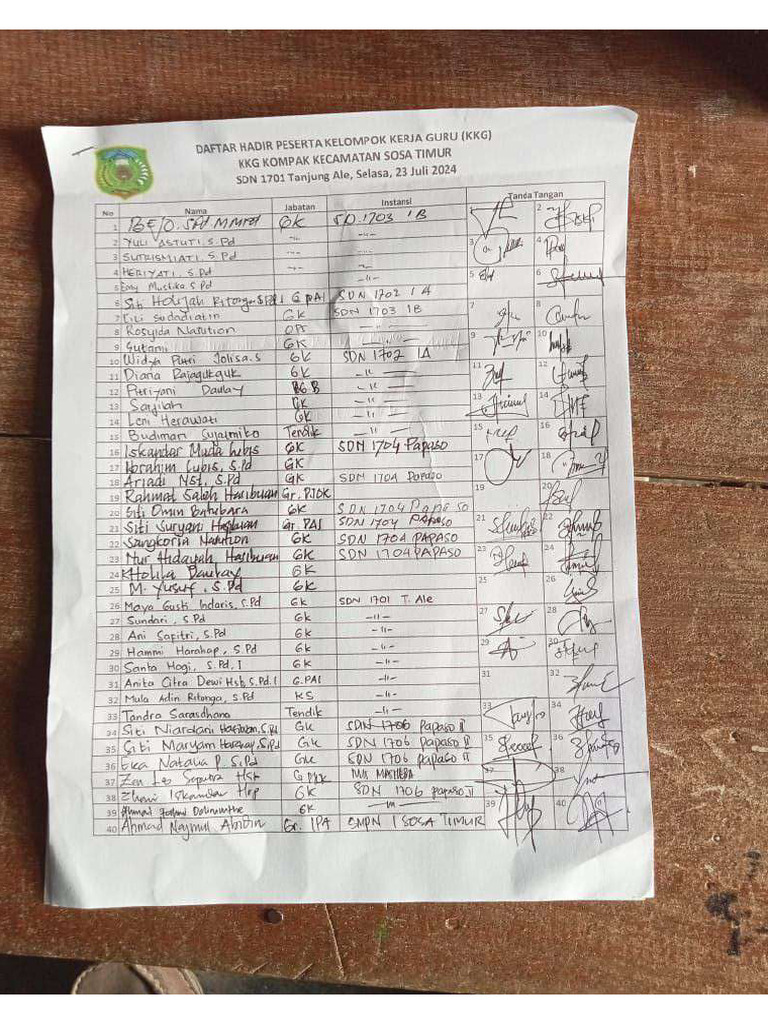 DAFTAR HADIR PESERTA KELOMPOK KERJA GURU (KKG)
KKG KOMPAK KECAMATAN SOSA TIMUR
SDN 1701 Tanjung Ale, Selasa, 23 Juli 2024
No Nama Jabatan Instansi Tanda Tangan
1 GK SD. 1703 1B 1 2
2 YULI ASTUTI, S.Pd -"- -"-
3 SUTRISMIATI, S.Pd -"- -"- 3 4
4 HERIYATI, S.Pd -"- -"-
5 Eny Mustika S.Pd -"- 5 6
6 Siti Holijah Ritonga S.Pd.I G.PAI SDN 1702 1A
7 Titi GK SDN 1703 1B 7 8
8 Rosyida Nasution -"-
9 Sutami GK -"- 9 10
10 Widya Putri Jolisa.S GK SDN 1702 1A
11 Diana Rajagukguk GK -"- 11 12
12 Fitriyani Daulay -"-
13 GK -"- 13 14
14 Leni Herawati GK -"-
15 Budiman Sujatmiko Tendik -"- 15 16
16 Iskandar Muda Lubis GK SDN 1704 Papaso
17 Ibrahim Lubis, S.Pd GK 17 18
18 Ariadi Nst, S.Pd GK SDN 1704 Papaso
19 Rahmat Saleh Hasibuan Gr.PJOK 19 20
20 Siti Omin Batubara GK SDN 1704 Papaso
21 Siti Suryani Gr.PAI SDN 1704 PAPASO 21 22
22 Sangkoria Nasution GK SDN 1704 PAPASO
23 Nur Hidayah Hasibuan GK SDN 1704 PAPASO 23 24
24 Kholila Daulay GK
25 M. Yusuf, S.Pd GK 25 26
26 Maya Gusti Indaris, S.Pd GK SDN 1701 T. Ale
27 Sundari, S.Pd GK -"- 27 28
28 Ani Sapitri, S.Pd GK -"-
29 Hammi Harahap, S.Pd GK -"- 29 30
30 Santa Hagi, S.Pd.I GK -"-
31 Anita Citra Dewi Hsb, S.Pd.I G.PAI -"- 31 32
32 Mula Adin Ritonga, S.Pd KS -"-
33 Tandra Sarasdhana Tendik -"- 33 34
34 Siti Niardani Hasibuan, S.Pd GK SDN 1706 Papaso II
35 Siti Maryam Harahap, S.Pd GK SDN 1706 papaso II 35 36
36 Eka Natalia P. S.Pd GK SDN 1706 papaso II
37 Saputra Hsb 37 38
38 Iskandar Hrp GK SDN 1706 papaso II
39 Ahmad GK -"- 39 40
40 Ahmad Naymul Abidin Gr. IPA SMPN 1 SOSA TIMUR